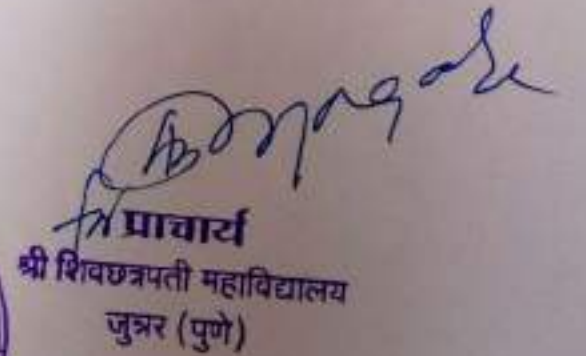 प्राचार्य
श्री शिवछत्रपती महाविद्यालय
जुन्नर (पुणे)